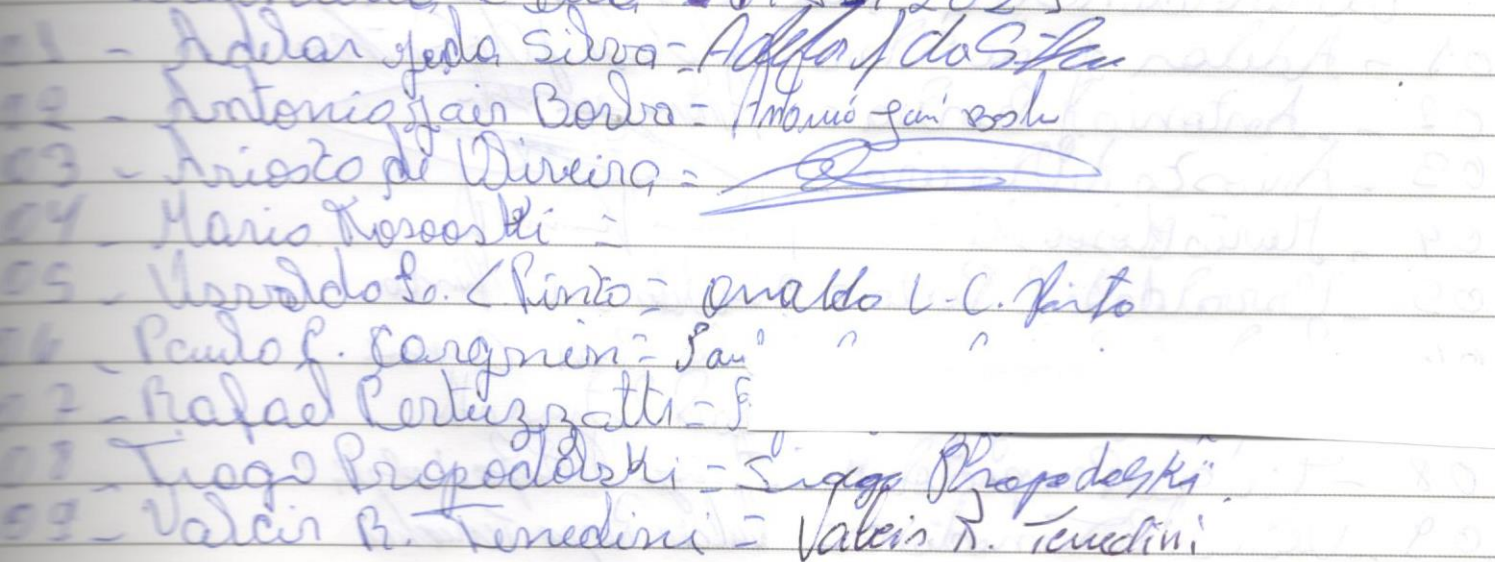 2023
01 - Adelar J. da Silva = Adelar J da Silva
02 - Antonio Jair Borba = Antonio Jair Borba
03 - Ariosto de Oliveira =
04 - Mario Kosooski =
05 - Usvaldo L. C Pinto = Osvaldo L. C. Pinto
06 - Paulo C. Cargnin = Pau
07 - Rafael Pertuzzatti =
08 - Tiago Propodolski = Tiago Propodolski
09 - Valcir R. Tenedini = Valcir R. Tenedini